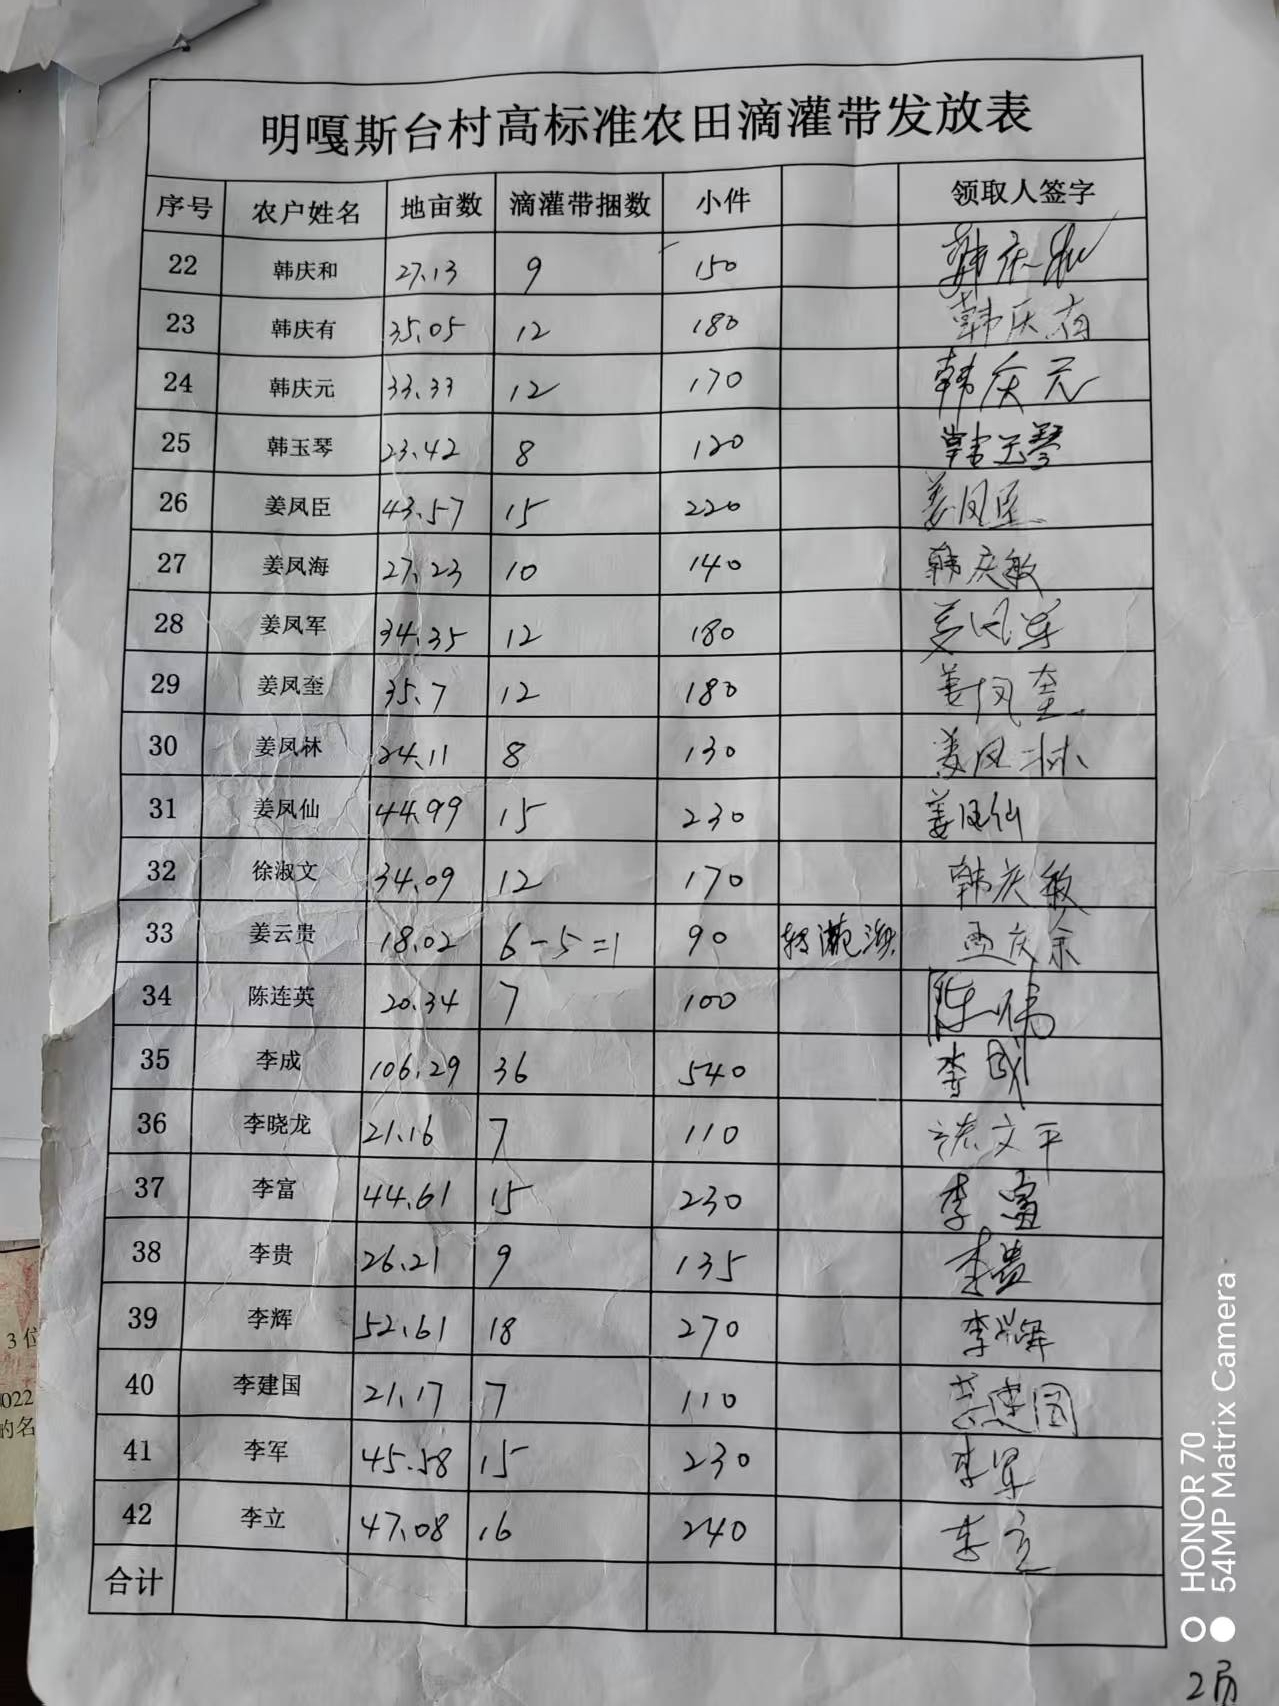 明嘎斯台村高标准农田滴灌带发放表
序号 农户姓名 地亩数 滴灌带捆数 小件 领取人签字
22 韩庆和 27.13 9 150 韩庆和
23 韩庆有 35.05 12 180 韩庆有
24 韩庆元 33.33 12 170 韩庆元
25 韩玉琴 23.42 8 120 韩玉琴
26 姜凤臣 43.57 15 220 姜凤臣
27 姜凤海 27.23 10 140 韩庆敏
28 姜凤军 34.35 12 180 姜凤军
29 姜凤奎 35.7 12 180 姜凤奎
30 姜凤林 24.11 8 130 姜凤林
31 姜凤仙 44.99 15 230 姜凤仙
32 徐淑文 34.09 12 170 韩庆敏
33 姜云贵 18.02 6-5=1 90
34 陈连英 20.34 7 100
35 李成 106.29 36 540 李成
36 李晓龙 21.16 7 110 文平
37 李富 44.61 15 230 李富
38 李贵 26.21 9 135 李贵
39 李辉 52.61 18 270 李辉
40 李建国 21.17 7 110 李建国
41 李军 45.58 15 230 李军
42 李立 47.08 16 240 李立
合计
3位
022
的名
HONOR 70
54MP Matrix Camera
2页